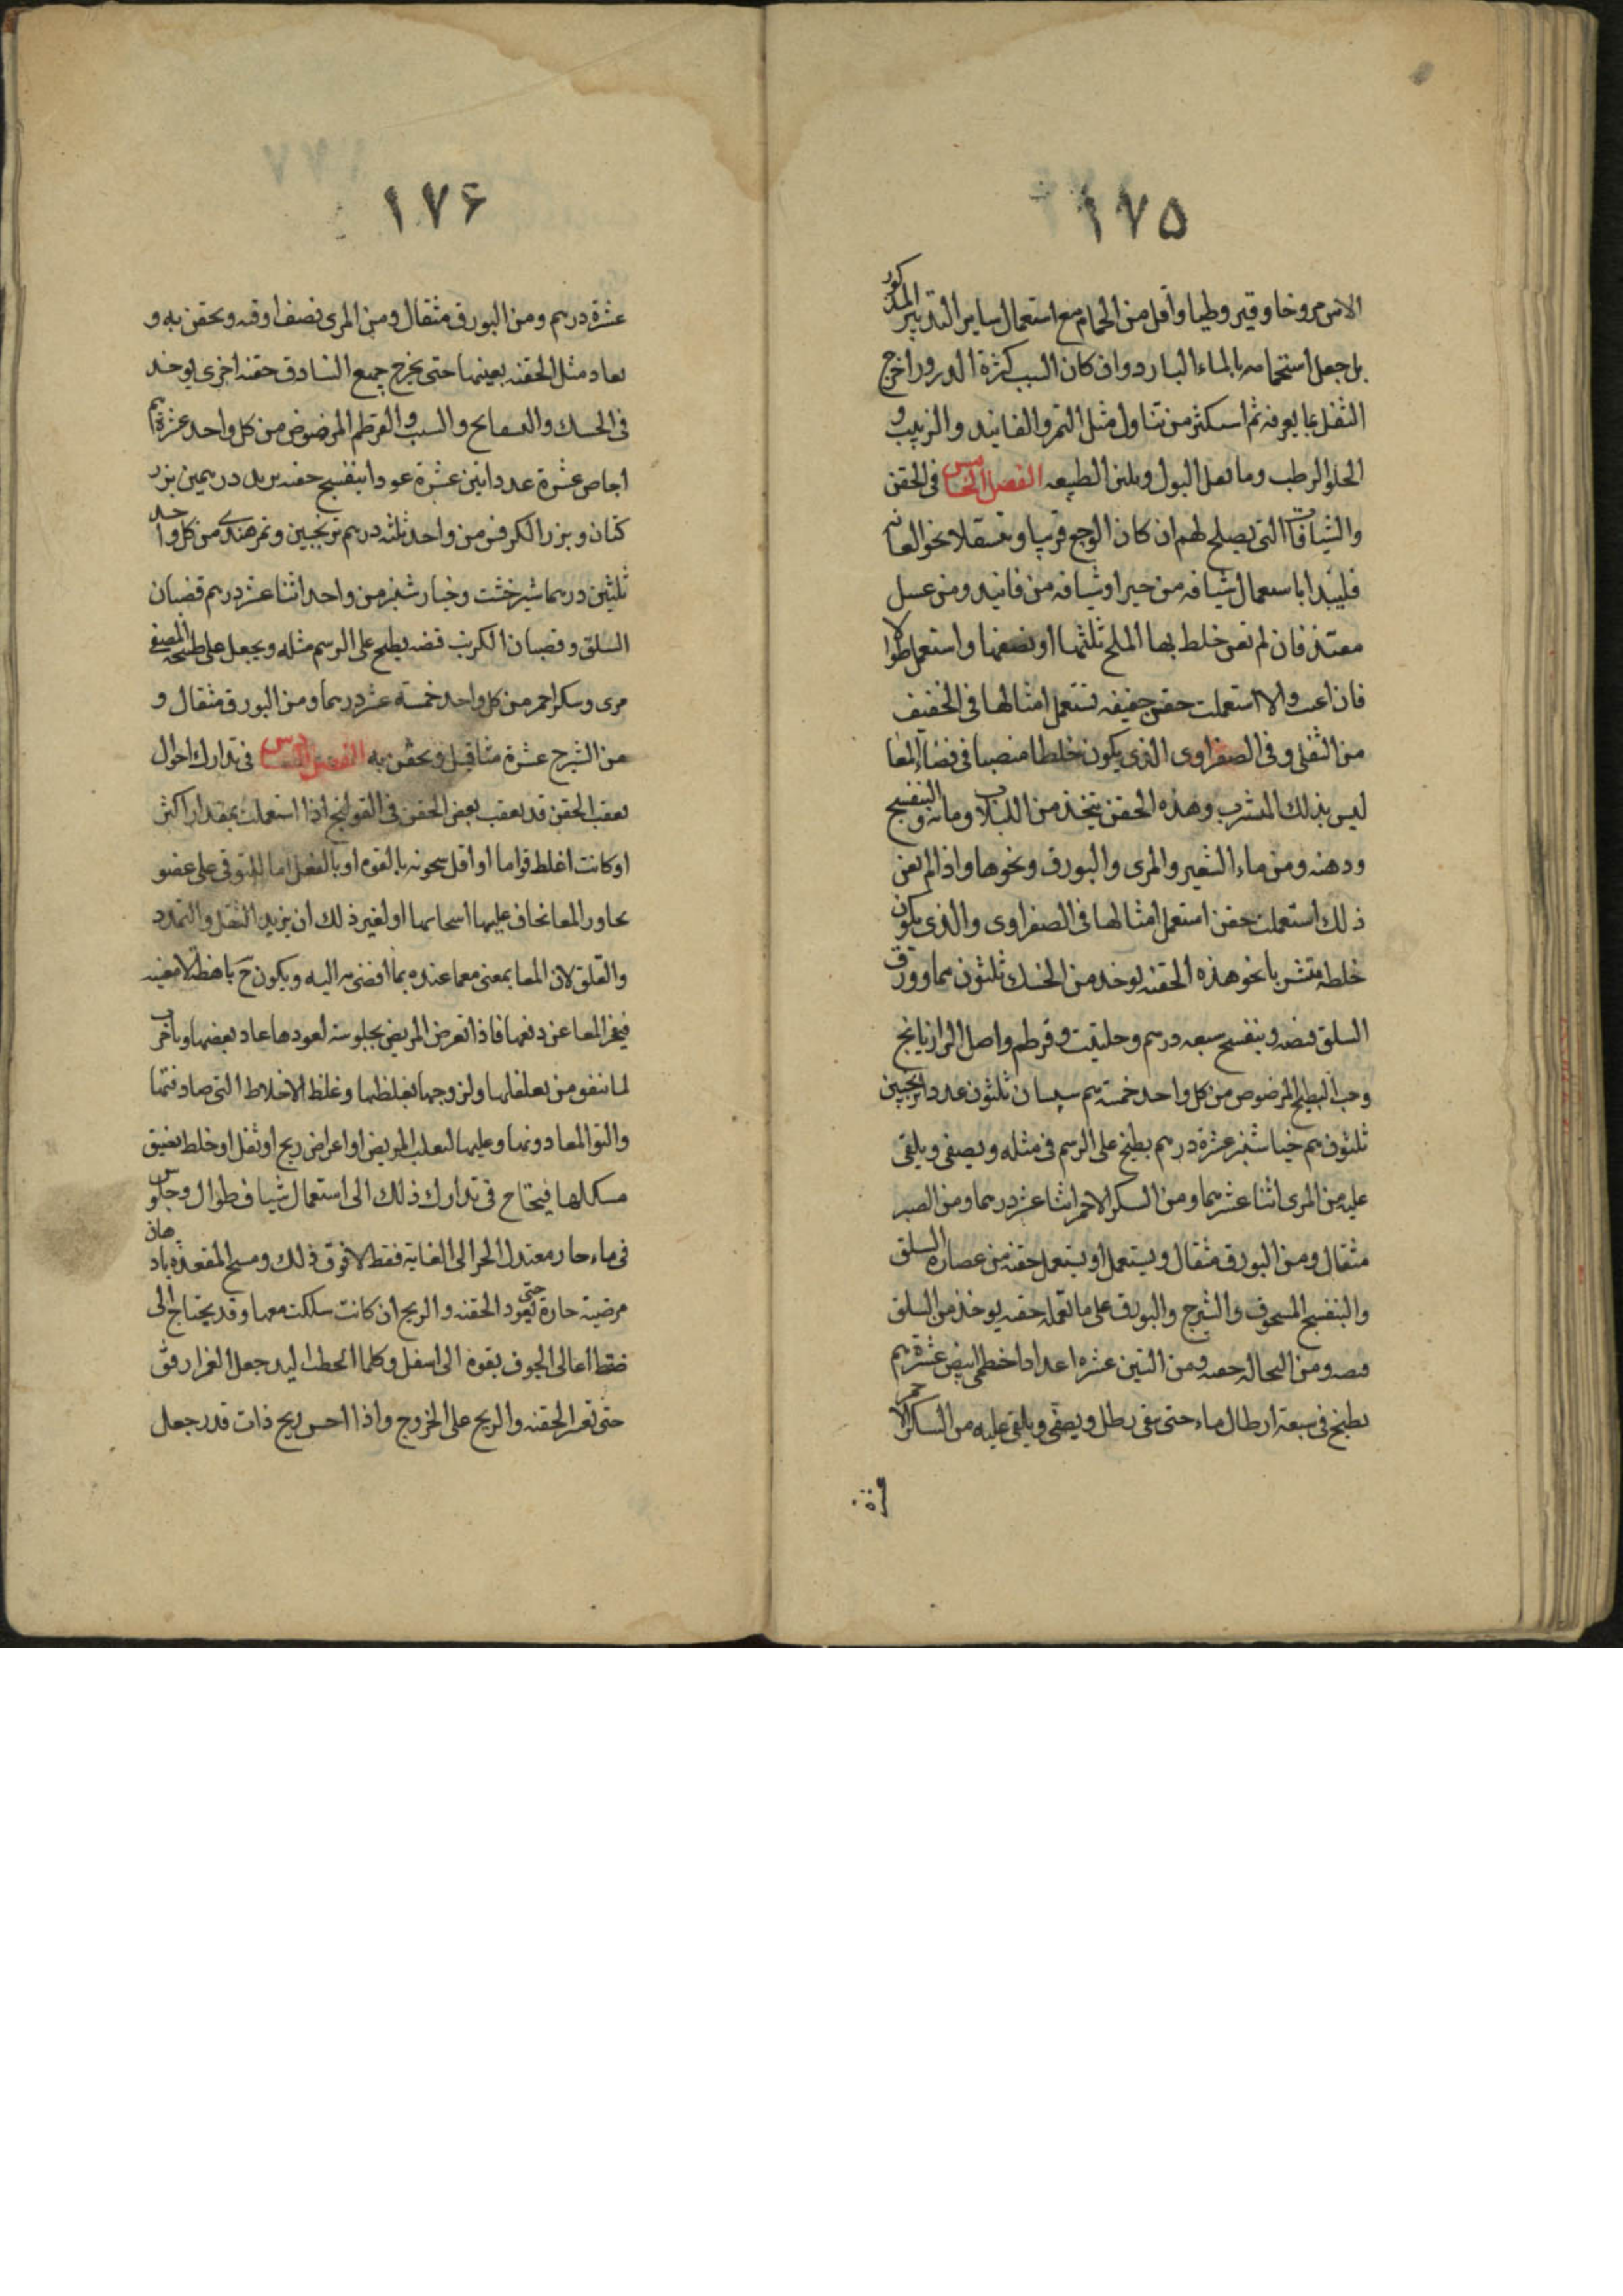 ١٧٥
الاس مروخا وقيروطيا واقل من الحمام مع استعمال ساير التدبير المذكور
بل جعل استحمامه بالماء البارد وان كان السبب كثرة الدرور اخرج
الثفل بما يعرفه ثم استكثر من تناول مثل التمر والفانيد والزبيب و
الحلو الرطب وما يقل البول ويلين الطبيعه الفصل الخامس فى الحقن
والشيافات التى يصلح لهم ان كان الوجع قريبا و نحو العانه
فليبدا باستعمال شيافه من خيرا وشيافه من فانيد ومن عسل
فان لم تغن خلط بها الملح ثلثها او نصفها واستعمل طوالا
فان اغنت والا استعملت حقن خفيفه تستعمل امثالها فى الخفيف
من الثفلى وفى الصفراوى الذى يكون خلطا منصبا فى فضاء المعا
ليس بذلك المشرب وهذه الحقن يتخذ من اللبلاب ومائه والبنفسج
ودهنه ومن ماء الشعير والمرى والبورق ونحوها واذا لم يغن
ذلك استعملت حقن استعمل امثالها فى الصفراوى والذى يكون
خلطه متشربا نحو هذه الحقنه يوخذ من الحسك ثلثون سما وورق
السلق قبضه وبنفسج سبعه درسم وحلتيت وقرطم واصل الرازيانج
وحب البطيخ المرضوض من كل واحد خمسة سم سبستان ثلثون عددا ترنجبين
ثلثون سم خيارشنبر عشرة درسم يطبخ على الرسم فى مثله ويصفى ويلقى
عليه من المرى اثنا عشر سما ومن السكر الاحمر اثنا عشر درسما ومن الصبر
مثقال ومن البورق مثقال ويستعمل او يستعمل حقنه من عصاره السلق
والبنفسج المسحوق والشيرج والبورق على ما تعمله حقنه يوخذ من السلق
قبضه ومن النخاله حفنه ومن التين عشره اعدادا خطمى ابيض عشرة سم
يطبخ فى سبعة ارطال ماء حتى يبقى رطل ويصفى ويلقى عليه من السكر الاحمر
عشرة
١٧۶
عشرة درسم ومن البورق مثقال ومن المرى نصف اوقه ويحقن به و
يعاد مثل الحقنه بعينها حتى يخرج جميع البنادق حقنه اخرى يوخذ
فى الحسك والبسفايج والشبت والقرطم المرضوض من كل واحد عشرة سم
اجاص عشرة عددا تين عشرة عودا بنفسج حفنه تربد درسمين بزر
كتان وبزر الكرفس من واحد ثلثه درسم ترنجبين وتمر هندى من كل واحد
ثلثين درسما شيرخشت وخيارشنبر من واحد اثنا عشر درسم قضبان
السلق وقضبان الكرنب قبضه يطبخ على الرسم مثله ويجعل على طبيخه المصفى
مرى وسكر احمر من كل واحد خمسة عشر درسما ومن البورق مثقال و
من الشيرج عشرة مثاقيل ويحقن به الفصل السادس فى تدارك احوال
يعقب الحقن قد يعقب بعض الحقن فى القولنج اذا استعملت بمقدار اكثر
او كانت اغلظ قواما او اقل سخونه بالقوه او بالفعل اما للتوقى على عضو
يجاور المعا يخاف عليها اسخانها او لغير ذلك ان يزيد الثقل والتمدد
والقلق لان المعا بمعنى معما عنده بما افضى به اليه ويكون ح باهظا لا معينه
فيعجز المعا عن دفعها فاذا تعرض المريض بجلوسه لعودها عاد بعضها وتاخر
لما ينفق من تعلقها ولزوجها بغلظها وغلظ الاخلاط التى صادفتها
والتوا المعا دونها وعليها لتقلب المريض او اعراض ريح او ثفل او خلط يضيق
مسلكها فيحتاج فى تدارك ذلك الى استعمال شياف طوال وجلوس
فى ماء حار معتدل الحر الى الغاية فقط لا فوق ذلك ومسح المقعده بادهان
مرضية حارة حتى يعود الحقنه والريح ان كانت سلكت معها وقد يحتاج الى
ضغط اعالى الجوف بقوه الى اسفل وكلما انحطت اليد جعل الغمز ارفق
حتى تعسر الحقنه والريح على الخروج واذا احس ريح ذات قدر جعل